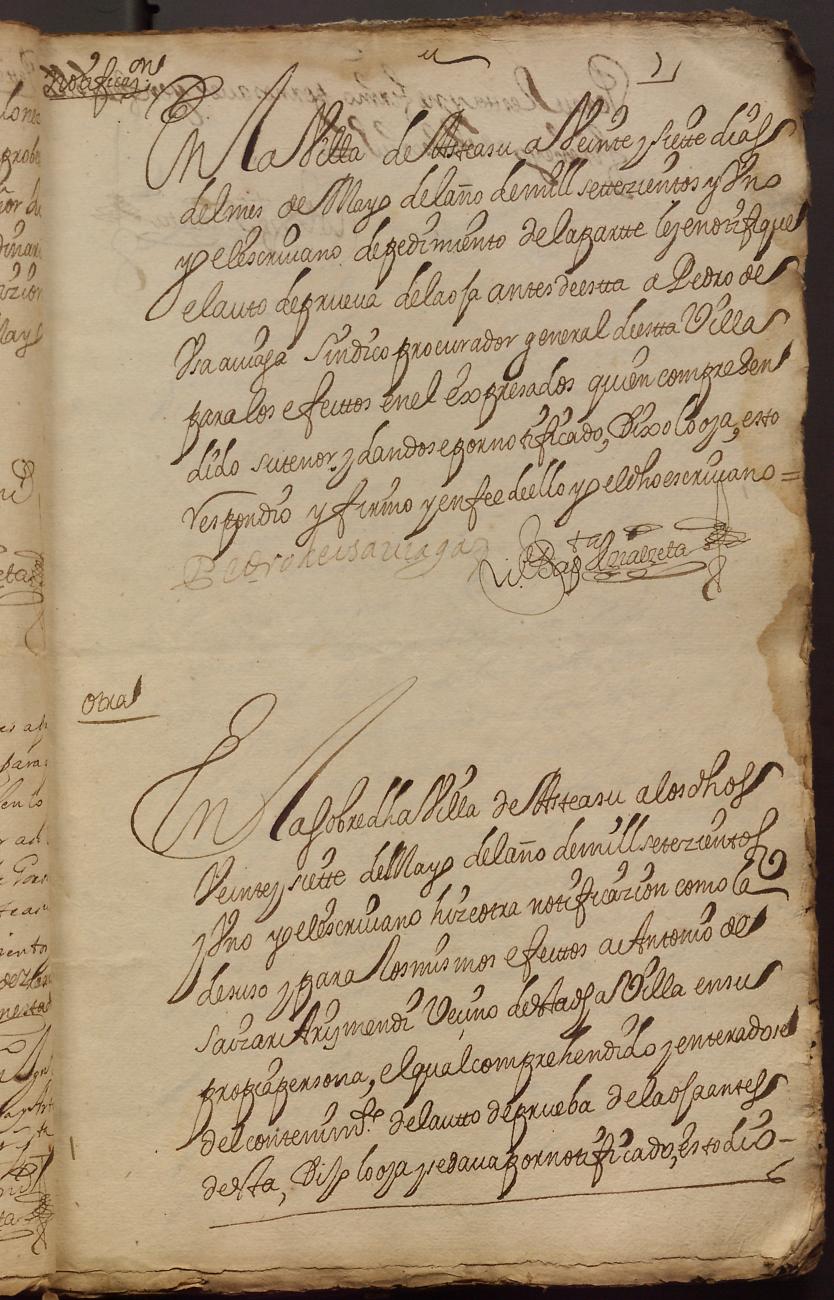 Notificaon
En la Villa de Asteasu a Veinte y siette dias
del mes de Mayo del año de mill settezientos y Vno
yo el escriuano de pedimiento de la partte ley e notifique
el auto de prueua de la oja antes de estta a Pedro de
Ysauiaga Sindico procurador general de estta Villa
para los efecttos en el Expresados quien comprehen
dido su tenor, y dandose por notificado, Dixo lo oja, esto
respondio y firmo y en fee de ello yo el dho escriuano =
Pedro de isauiaga
Bapta
Otra
En la sobredha Villa de Asteasu a los dhos
Veinte y siette de Mayo del año de mill setezientos
y Vno yo el escriuano hize otra notificazion como la
desuso y para los mismos efecttos a Antonio de
Saizar Arizmendi Vecino de esta dha Villa en su
propia persona, el qual comprehendido y enteradose
del contenimto del autto de prueba de la oja antes
de esta, Dijo lo oja y se daua por notificado, esto dio